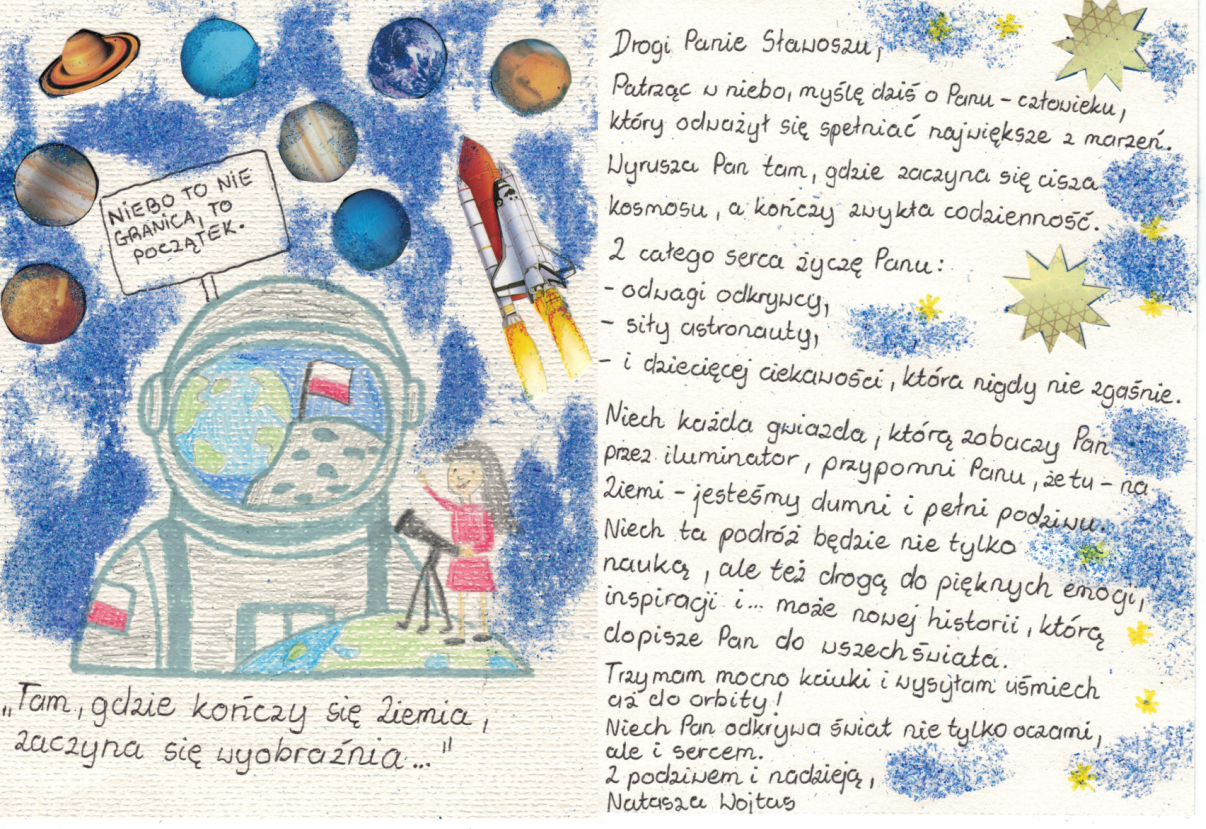 NIEBO TO NIE
GRANICA, TO
POCZĄTEK.
„Tam, gdzie kończy się Ziemia,
zaczyna się wyobraźnia..."
Drogi Panie Sławoszu,
Patrząc w niebo, myślę dziś o Panu – człowieku,
który odważył się spełniać największe z marzeń.
Wyrusza Pan tam, gdzie zaczyna się cisza
kosmosu, a kończy zwykła codzienność.
Z całego serca życzę Panu:
- odwagi odkrywcy,
- siły astronauty,
- i dziecięcej ciekawości, która nigdy nie zgaśnie.
Niech każda gwiazda, którą zobaczy Pan
przez iluminator, przypomni Panu, że tu – na
Ziemi – jesteśmy dumni i pełni podziwu.
Niech ta podróż będzie nie tylko
nauką, ale też drogą do pięknych emocji,
inspiracji i... może nowej historii, którą
dopisze Pan do wszechświata.
Trzymam mocno kciuki i wysyłam uśmiech
aż do orbity!
Niech Pan odkrywa świat nie tylko oczami,
ale i sercem.
Z podziwem i nadzieją,
Natasza Wojtas